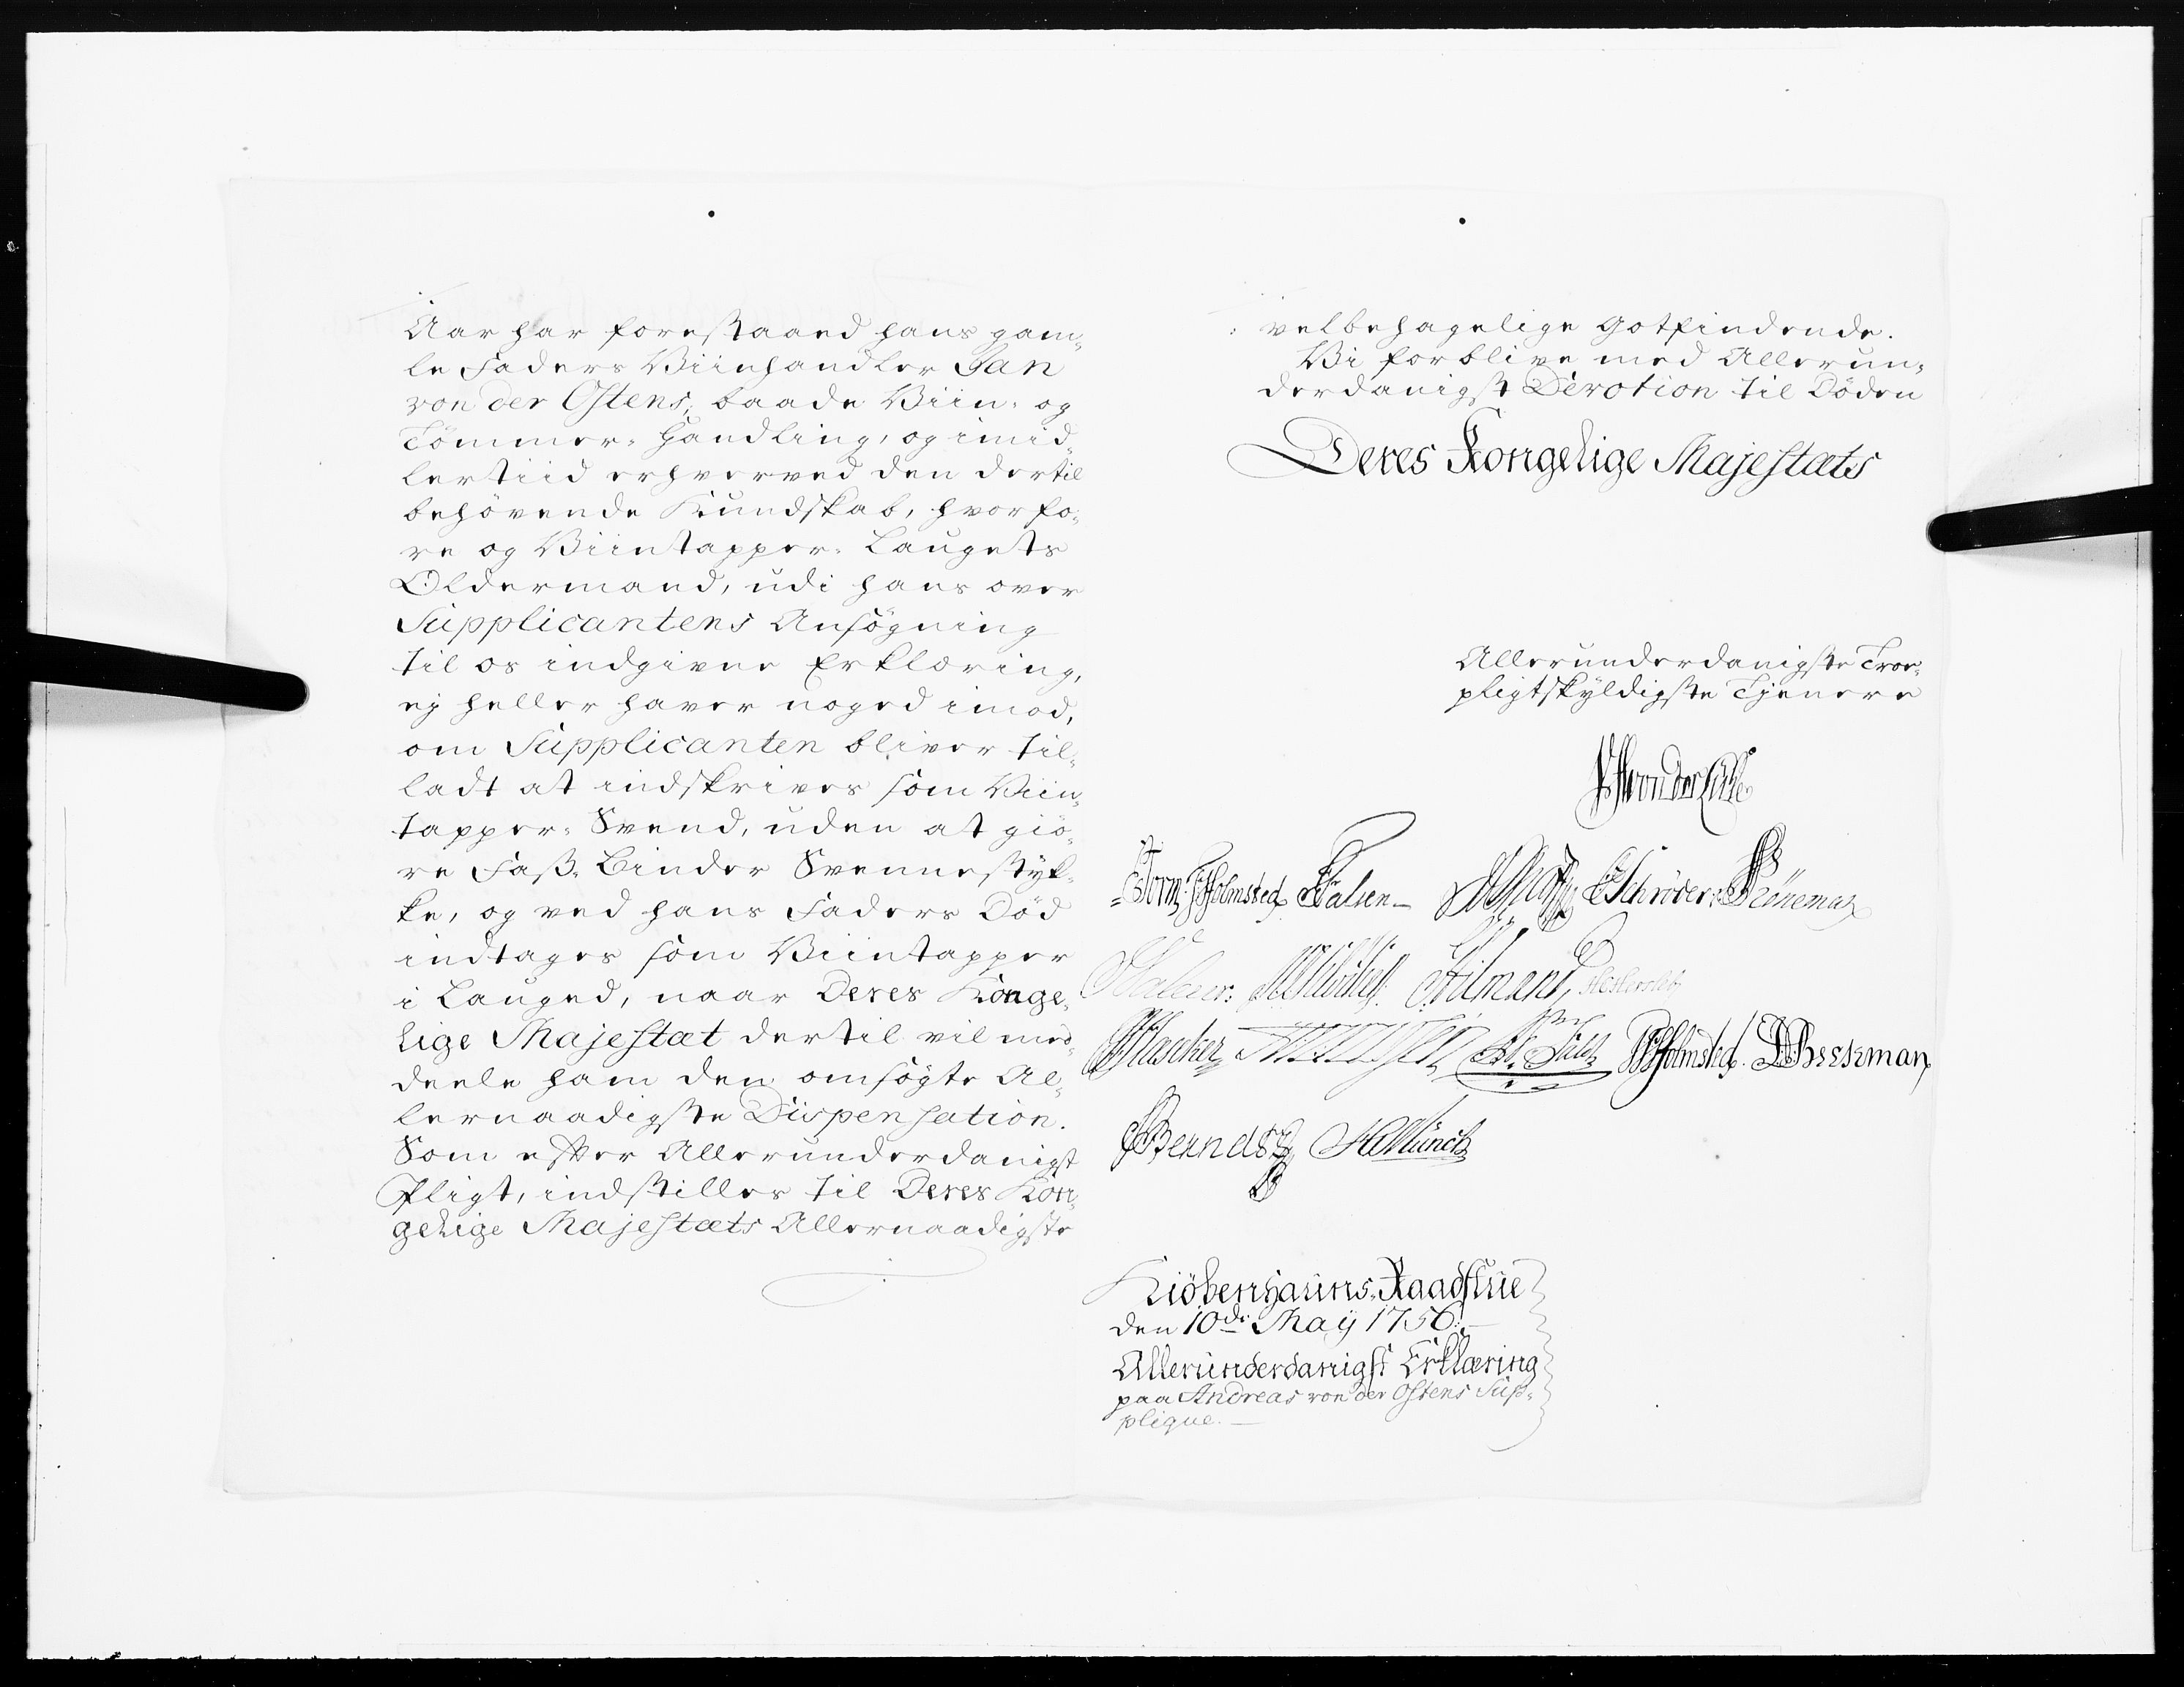 Aar har forestaaed hans gam¬
le Faders Viinhandler Jan
von der Ostens, baade Viin- og
Tömmer-Handling, og imid¬
lertiid erhverved den dertil
behövende Kundskab, hvorfo¬
re og Viintapper-Laugets
Oldermand, udi hans over
Supplicantens Ansögning
til os indgivne Erklæring,
ej heller haver noged imod,
om Supplicanten bliver til¬
ladt at indskrives som Viin¬
tapper-Svend, uden at giö¬
re Fass-Binder Svennestyk¬
ke, og ved hans Faders Död
indtages som Viintapper
i Lauged, naar Deres Konge¬
lige Majestæt dertil vil med¬
deele ham den omsögte Al¬
lernaadigste Dispensation.
Som efter Allerunderdanigst
Pligt, indstilles til Deres Kon¬
gelige Majestæts Allernaadigste
velbehagelige Gotfindende.
Vi forblive med Allerun¬
derdanigst Devotion til Döden
Deres Kongelige Majestæts
Allerunderdanigste Troe¬
pligtskyldigste Tjenere
von der Lühe
Holmsted Falsen Schröder
Klasker Holmsted Beekman
Berndts Münch
Kiöbenhauns Raadstue
den 10de May 1756.
Allerunderdanigst Erklæring
paa Andreas von der Ostens Sup¬
plique.